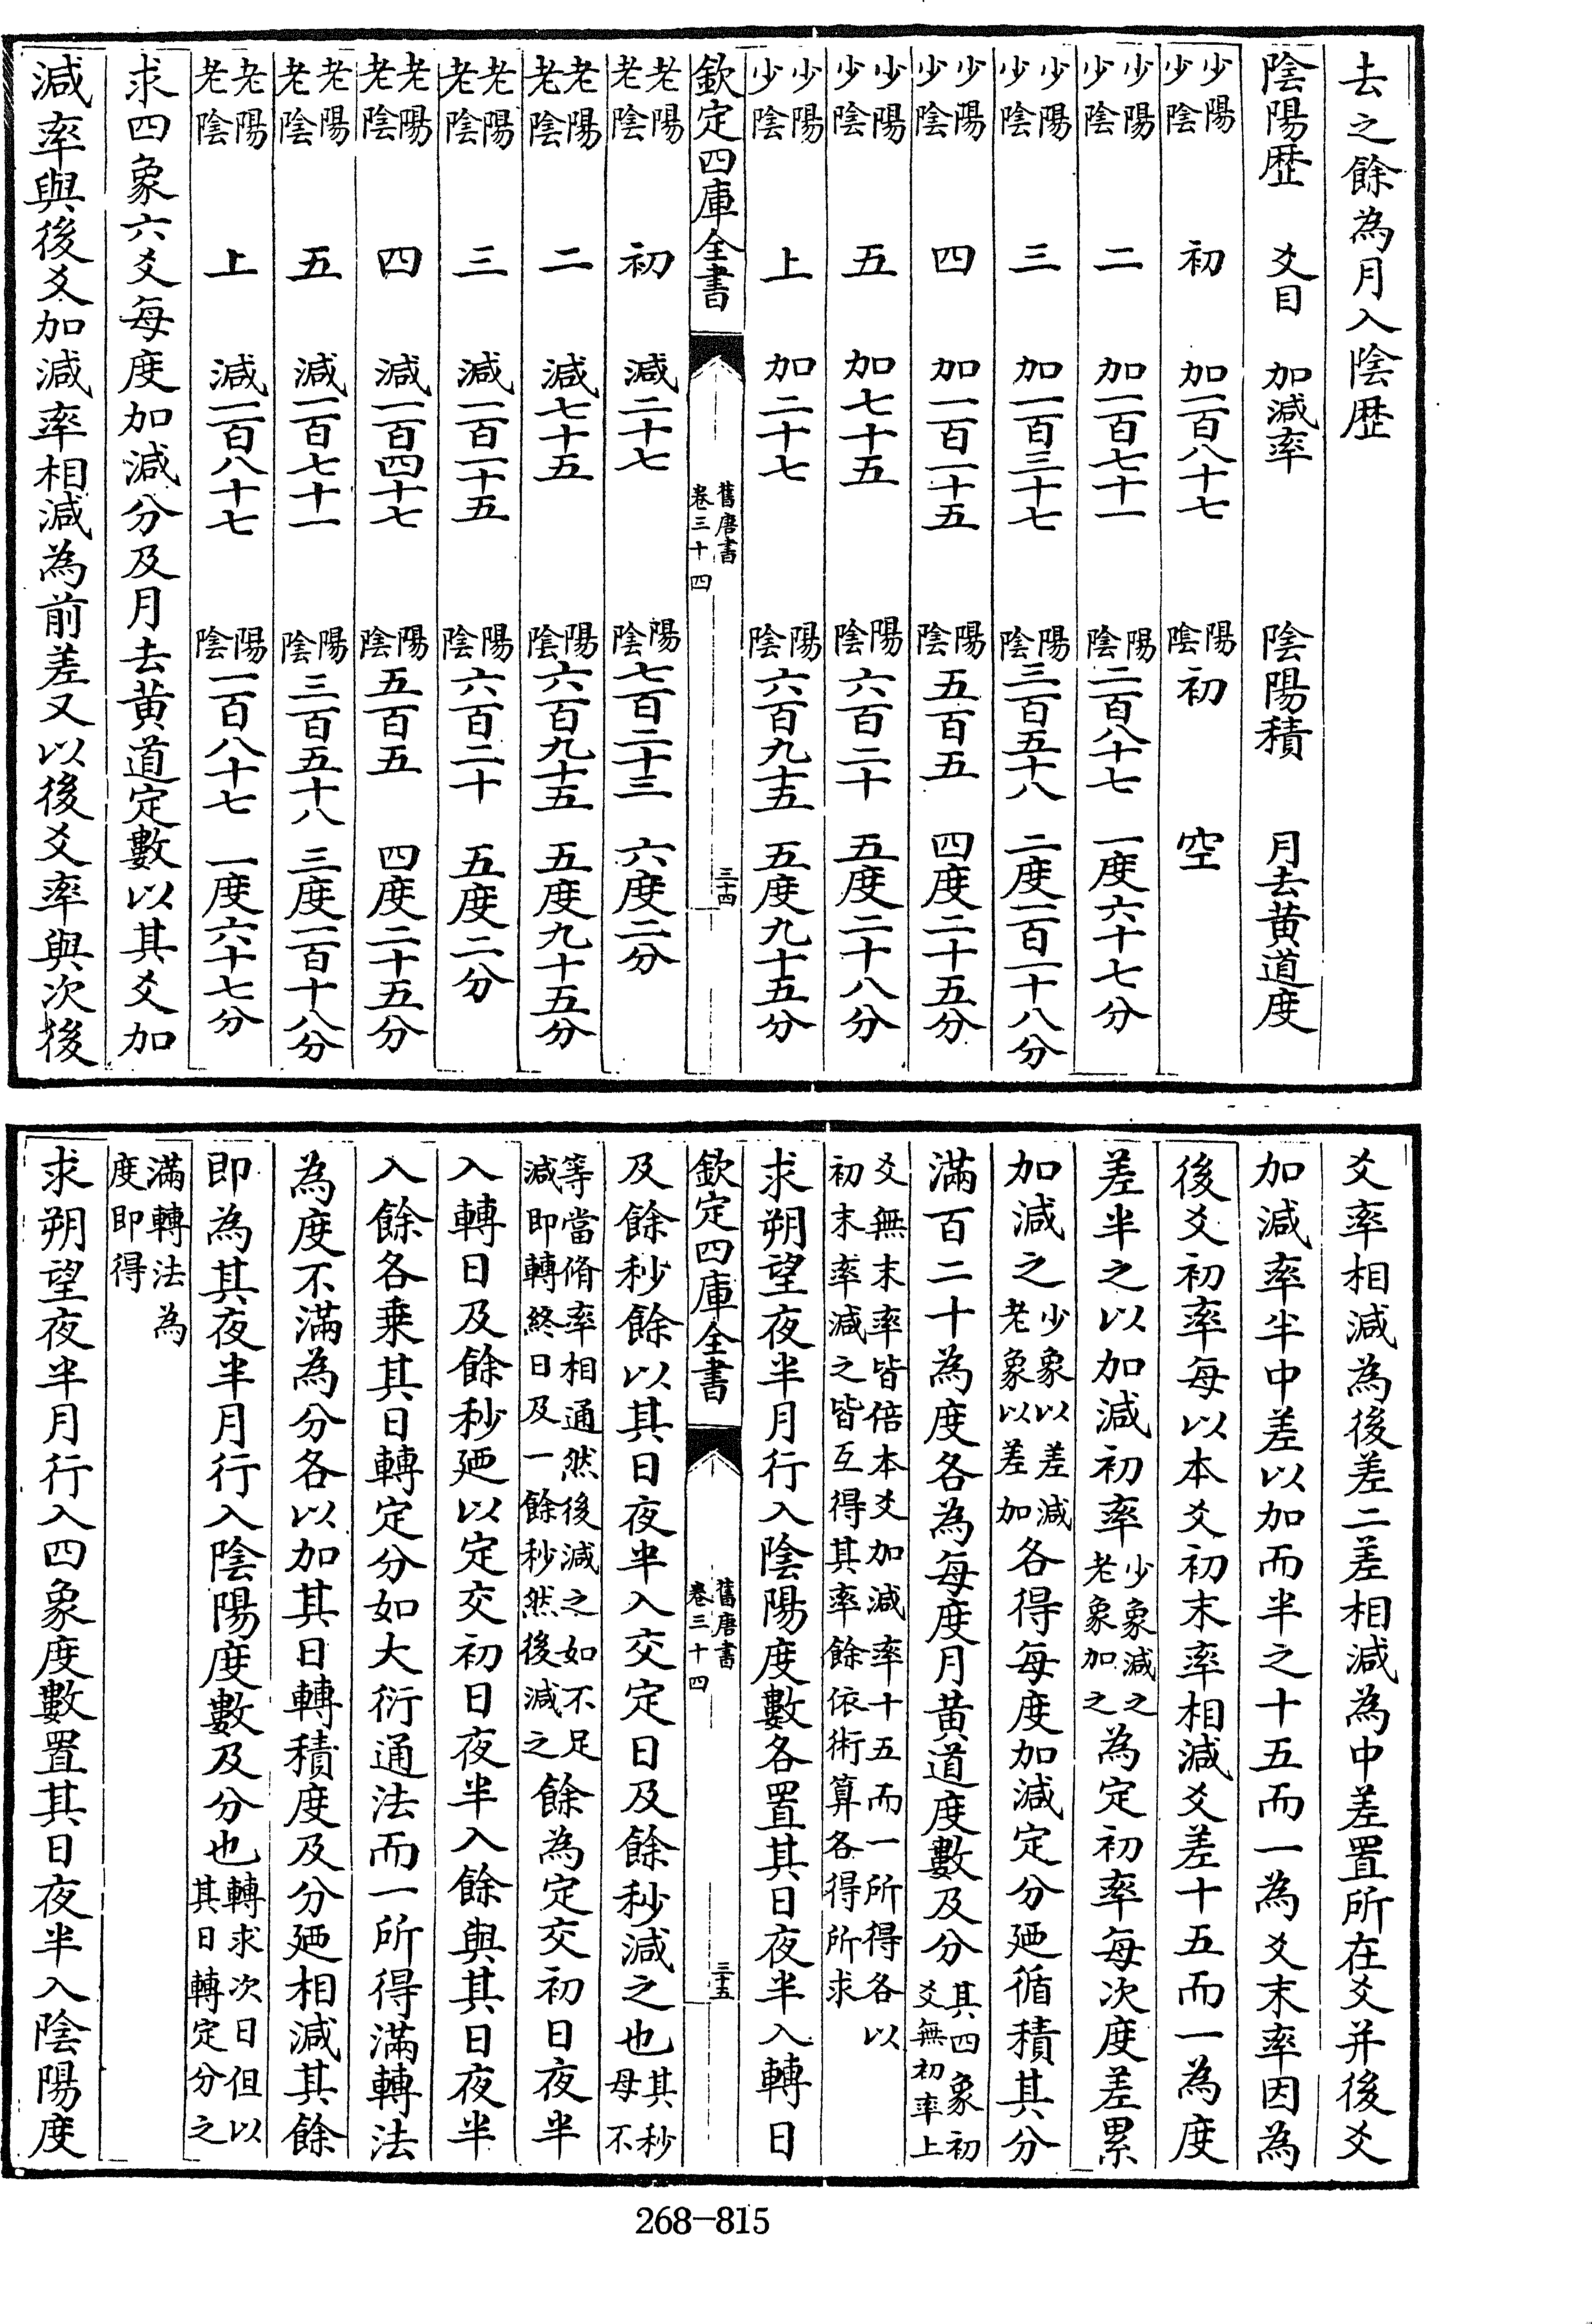 去之餘為月入陰歴
陰陽歴　爻目　加減率　陰陽積　月去黃道度
少陽少陰　初　加一百八十七　陽陰初　空
少陽少陰　二　加一百七十一　陽陰二百八十七　一度六十七分
少陽少陰　三　加一百三十七　陽陰三百五十八　二度一百一十八分
少陽少陰　四　加一百一十五　陽陰五百五　四度二十五分
少陽少陰　五　加七十五　陽陰六百二十　五度二十八分
少陽少陰　上　加二十七　陽陰六百九十五　五度九十五分
欽定四庫全書　舊唐書卷三十四　三十四
老陽老陰　初　減二十七　陽陰七百二十三　六度二分
老陽老陰　二　減七十五　陽陰六百九十五　五度九十五分
老陽老陰　三　減一百一十五　陽陰六百二十　五度二分
老陽老陰　四　減一百四十七　陽陰五百五　四度二十五分
老陽老陰　五　減一百七十一　陽陰三百五十八　三度一百十八分
老陽老陰　上　減一百八十七　陽陰一百八十七　一度六十七分
求四象六爻每度加減分及月去黃道定數以其爻加
減率與後爻加減率相減為前差又以後爻率與次後
爻率相減為後差二差相減為中差置所在爻并後爻
加減率半中差以加而半之十五而一為爻末率因為
後爻初率每以本爻初末率相減爻差十五而一為度
差半之以加減初率少象減之老象加之為定初率每次度差累
加減之少象以差減老象以差加各得每度加減定分廼循積其分
滿百二十為度各為每度月黃道度數及分其四象初爻無初率上
爻無末率皆倍本爻加減率十五而一所得各以初末率減之皆互得其率餘依術算各得所求
求朔望夜半月行入陰陽度數各置其日夜半入轉日
欽定四庫全書　舊唐書卷三十四　三十五
及餘秒餘以其日夜半入交定日及餘秒減之也其秒母不
等當脩率相通然後減之如不足減即轉終日及一餘秒然後減之餘為定交初日夜半
入轉日及餘秒廼以定交初日夜半入餘與其日夜半
入餘各乗其日轉定分如大衍通法而一所得滿轉法
為度不滿為分各以加其日轉積度及分廼相減其餘
即為其夜半月行入陰陽度數及分也轉求次日但以其日轉定分之
滿轉法為度即得
求朔望夜半月行入四象度數置其日夜半入陰陽度
268-815